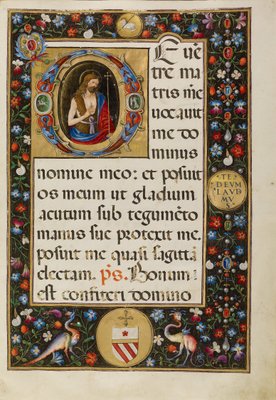 D E uẽ
tre ma
tris me
uocauit
me do
minus
nomine meo: et posuit
os meum ut gladium
acutum sub tegumẽto
manus sue protexit me.
posuit me quasi sagittã
electam. ps. Bonum
est confiteri domino
TE
DEVM
LAVD
MV
S